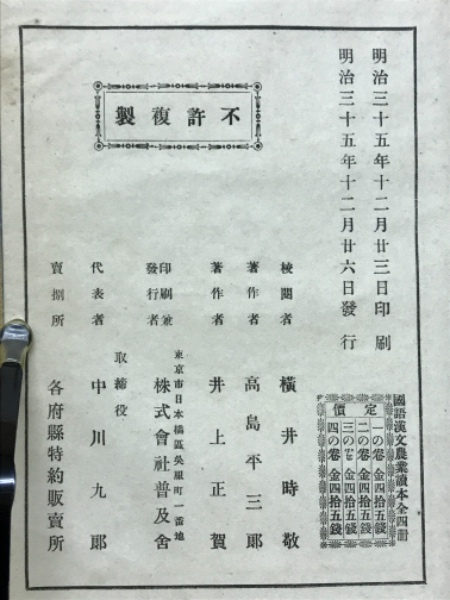 明治三十五年十二月廿三日印刷
明治三十五年十二月廿六日發行
不許複製
國語漢文農業讀本全四册
定價
一の卷 金四拾五錢
二の卷 金四拾五錢
三の卷 金四拾五錢
四の卷 金四拾五錢
校閲者 橫井時敬
著作者 高島平三郎
著作者 井上正賀
印刷兼發行者
東京市日本橋區吳服町一番地
株式會社普及舍
取締役
代表者 中川九郎
賣捌所 各府縣特約販賣所